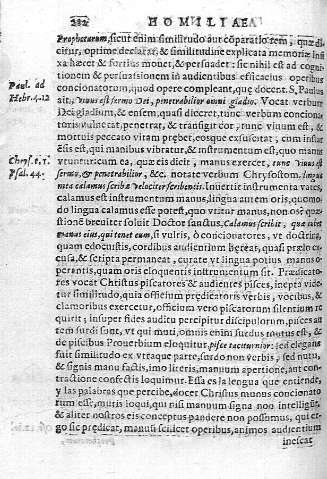 232 HOMILIAE
Prophetarum, sicut enim similitudo aut cõparatio rem, quæ di
citur, optime declarat, & similitudine explicata memoriæ inf
xa hæret & fortius monet, & persuadet: sic nihil est ad cogni
tionem & persuasionem in audientibus efficacius operibus
concionatorum, quod opere compleant, quę docent. S. Paulus
Paul. ad
Hebr. 4. 12
ait, viuus est sermo Dei, penetrabilior omni gladio. Vocat verbum
Dei gladium, & ensem, quasi diceret, tunc verbum conciona-
toris vulnerat, penetrat, & transfigit cor, tunc viuum est, &
mortuis peccato vitam præbet, eosque exsuscitat, cum
est, qui manibus vibratur, & instrumentum est, quo manus
Chrys. t. 1.
Psal. 44.
vtuntur: cum ea, quæ eis dicit, manus exercet, tunc viuus est
sermo, & penetrabilior, &c. notate verbum Chrysostom. lingua
mea calamus scribæ velociter scribentis. Inuertit instrumenta vates,
calamus est instrumentum manus, lingua autem oris, quomo-
do lingua calamus esse potest, quo vtitur manus, non os? quæ-
stionẽ breuiter soluit Doctor sanctus, calamus scribit, quæ iubet
manus eius, qui tenet eum, si vultis, ô concionatores, vt doctrina,
quam edocustis, cordibus audientium hæreat, quasi prælo ex-
cusa, & scripta permaneat, curate vt lingua potius manus o-
perantis, quam oris eloquentis instrumentum sit. Prædicato-
res vocat Christus piscatores & audientes pisces, inepta vide-
tur similitudo, quia officium prędicatoris verbis, vocibus, &
clamoribus exercetur, officium vero piscatorum silentium re
quirit; insuper fides auditu percipitur discipulorum, pisces au
tem surdi sunt, vt qui muti, omnis enim surdus mutus est, &
de piscibus Prouerbium eloquitur, pisce taciturnior: sed elegans
fuit similitudo ex vtraque parte, surdo non verbis, sed nutu,
& signis manu factis, imo literis, manuum apertione, aut con-
tractione confectis loquimur. Essa es la lengua que entiende,
y las palabras que percibe, docet Christus munus concionato
rum esse, mutis loqui, qui nisi manuum signa non intelligũt,
& aliter nostros eis conceptus pandere non possumus, qui er-
go sic prędicat, manus scilicet operibus, animos audientium
inescat